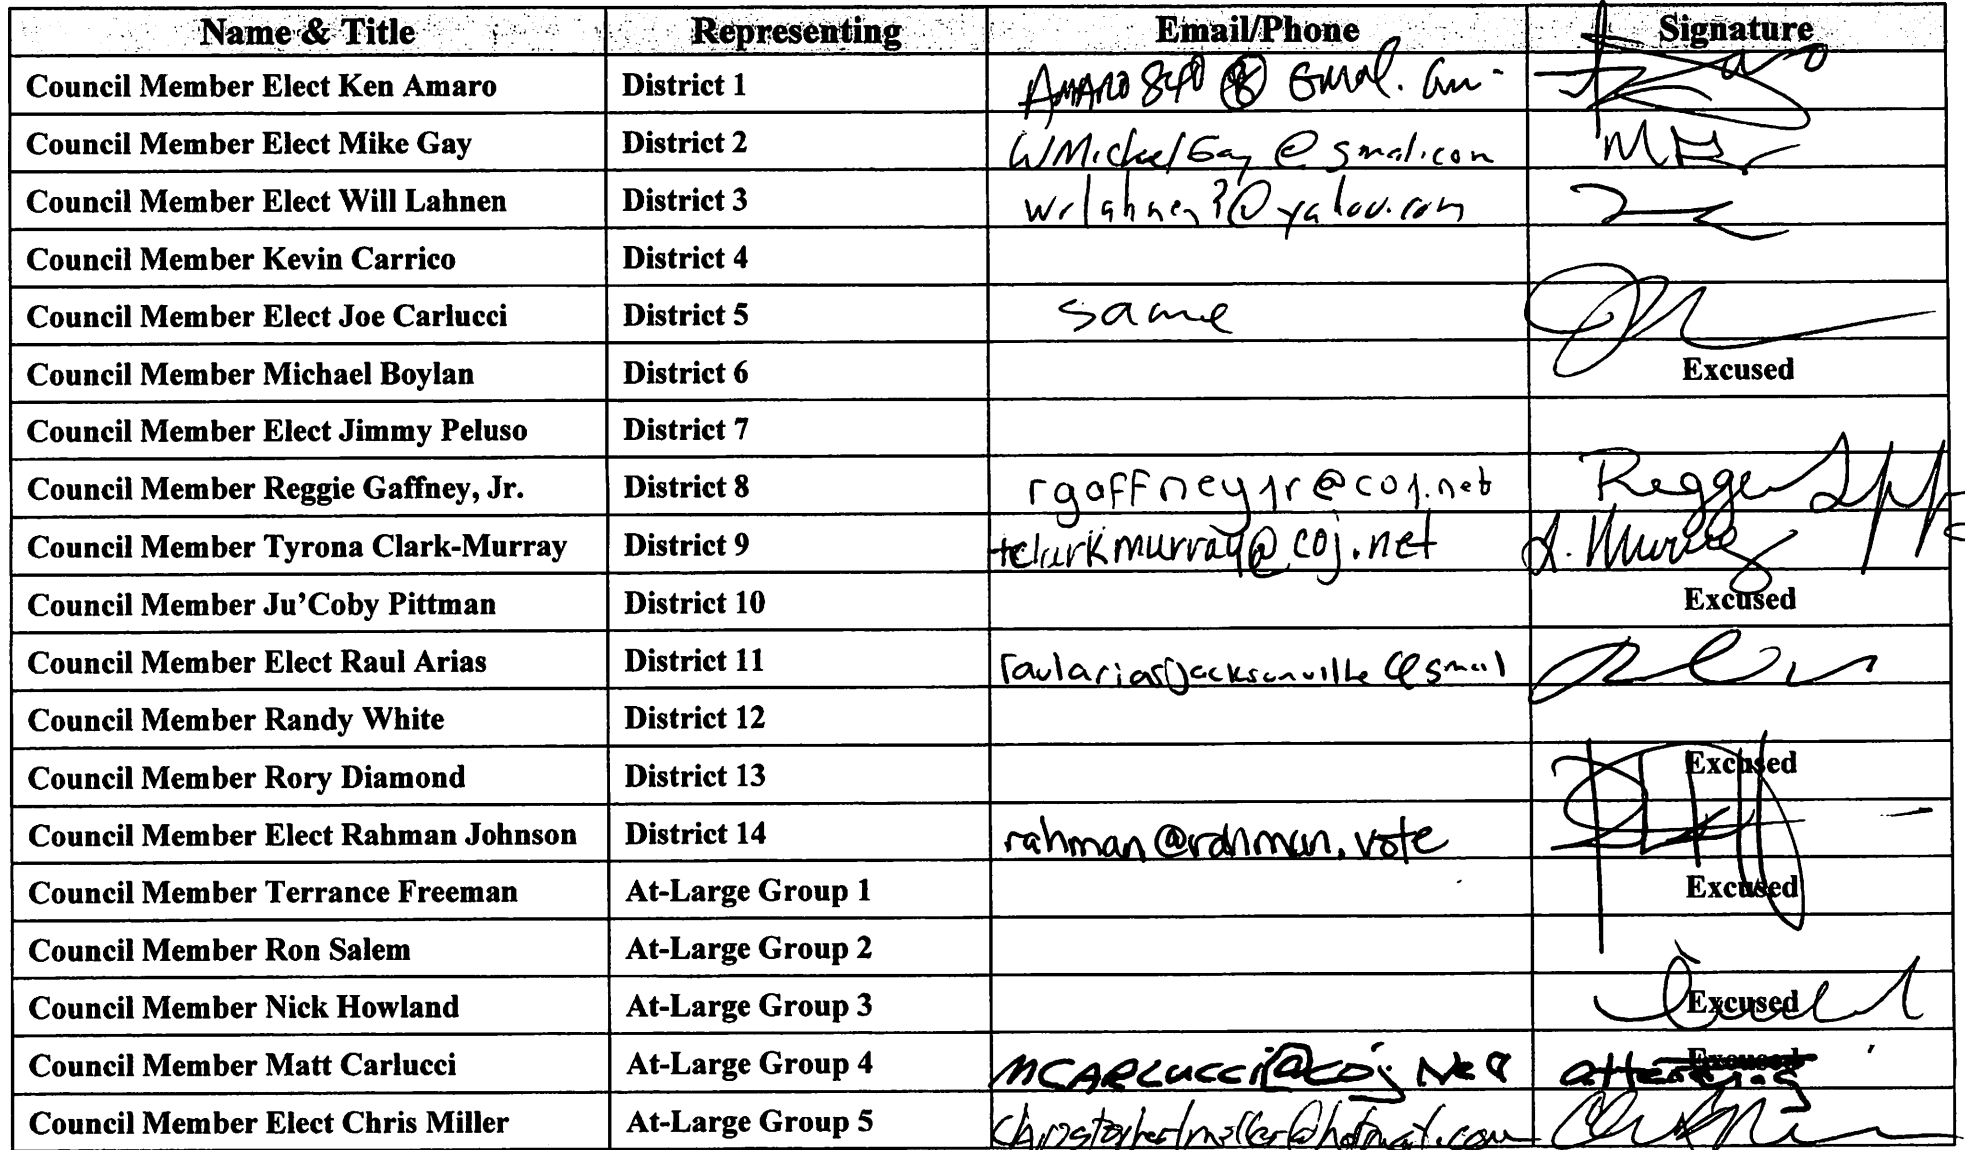 Name & Title Representing Email/Phone Signature
Council Member Elect Ken Amaro District 1
Council Member Elect Mike Gay District 2 WMichaelGay@gmail.com
Council Member Elect Will Lahnen District 3 @yahoo.com
Council Member Kevin Carrico District 4
Council Member Elect Joe Carlucci District 5 same
Council Member Michael Boylan District 6 Excused
Council Member Elect Jimmy Peluso District 7
Council Member Reggie Gaffney, Jr. District 8 rgaffneyjr@coj.net Reggie
Council Member Tyrona Clark-Murray District 9 tclarkmurray@coj.net Murray
Council Member Ju'Coby Pittman District 10 Excused
Council Member Elect Raul Arias District 11 raulariasjacksonville@gmail
Council Member Randy White District 12
Council Member Rory Diamond District 13 Excused
Council Member Elect Rahman Johnson District 14 rahman@rahman.vote
Council Member Terrance Freeman At-Large Group 1 Excused
Council Member Ron Salem At-Large Group 2
Council Member Nick Howland At-Large Group 3 Excused
Council Member Matt Carlucci At-Large Group 4 MCARLUCCI@coj.Net Excused attending
Council Member Elect Chris Miller At-Large Group 5